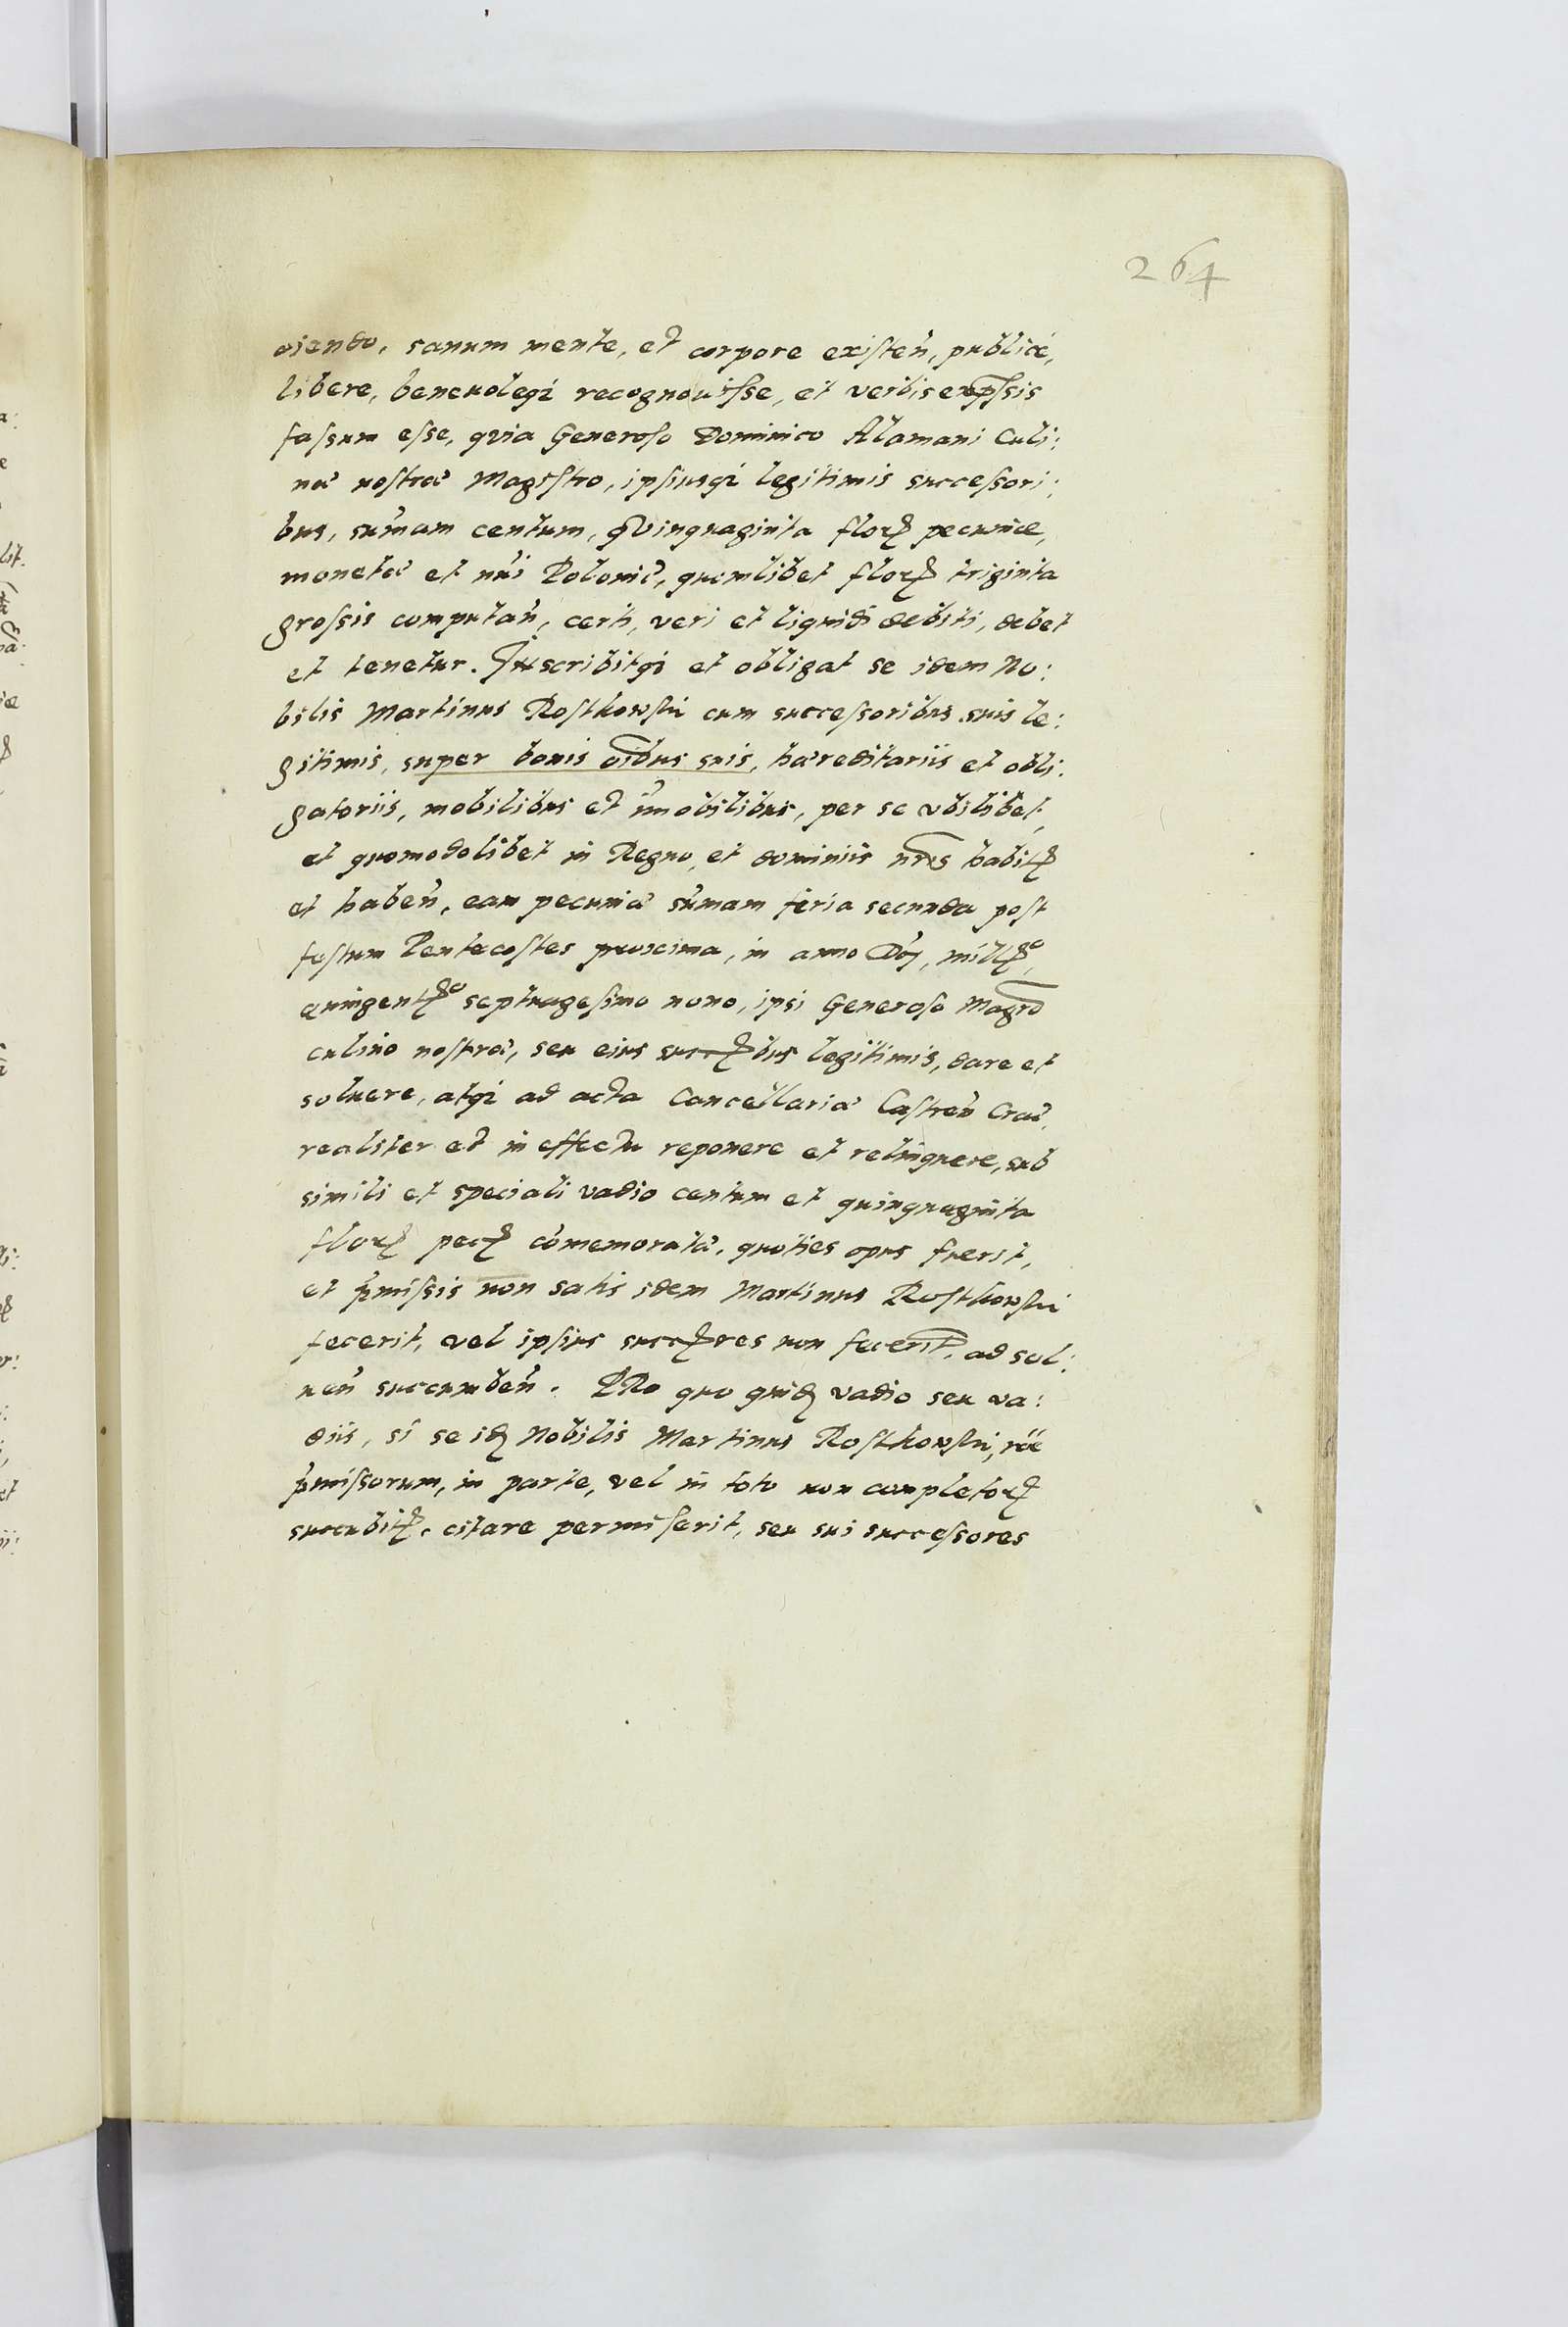 264
ciendo, sanum mente, et corpore existeñ, publicè,
libere, beneuoleq₃ recognouisse, et verbis exp̃ssis
fassum esse, quia Generoso Dominico Alamani Culi:
næ nostræ Magistro, ipsiusq₃ legitimis successori:
bus, sum̃am centum, quinquaginta floꝝ pecuniæ,
monetæ et nr̃i Poloniæ, quemlibet floꝝ triginta
grossis computañ, certi, veri et liquidi debiti, debet
et tenetur. Inscribitq₃ et obligat se idem No:
bilis Martinus Rostkowski cum successoribus suis le:
gitimis, super bonis oĩbus suis, hæreditariis et obli:
gatoriis, mobilibus et im̃obilibus, per se vbilibet,
et quomodolibet in Regno, et dominiis nr̃is habitꝭ
et habeñ, eam pecuniæ sum̃am feria secunda post
festum Pentecostes proxima, in anno Dnĩ, millꝭo,
quingentꝭo septuagesimo nono, ipsi Generoso Magr̃o
culinæ nostræ, seu eius succꝭbus legitimis, dare et
soluere, atq₃ ad acta Cancellariæ Castreñ Crac̃.
realiter et in effectu reponere et relinquere, sub
simili et speciali vadio centum et quinquaginta
floꝝ pecꝭ com̃emoratæ, quoties opus fuerit,
et p̃missis non satis idem Martinus Rostkowski
fecerit, vel ipsius succꝭres non fecerit̃, ad sol:
ueñ succumbeñ. PRo quo quidꝫ vadio seu va:
diis, si se idꝫ Nobilis Martinus Rostkowski, rõe
p̃missorum, in parte, vel in toto non completoꝝ
succubitꝭ, citare permiserit, seu sui successores